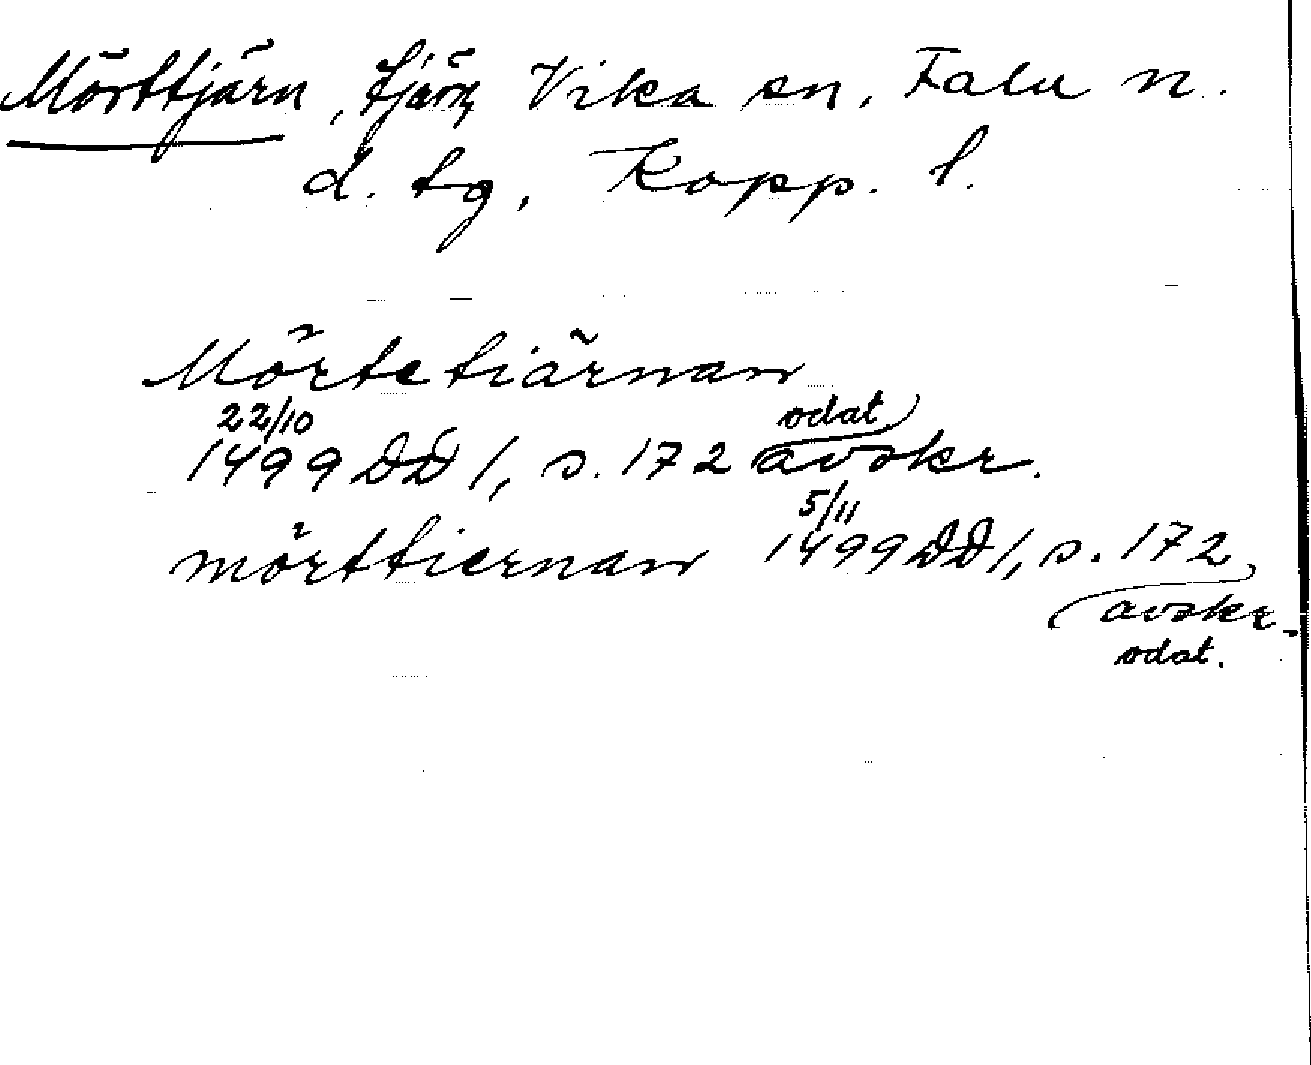 Mörttjärn, tjärn, Vika sn. Falu n.
d. tg, Kopp. l.
Mörtetiärnan
22/10 odat
1499 DD 1, s. 172 avskr.
5/11
mörttiernan 1499 DD 1, s. 172
avskr.
odat.